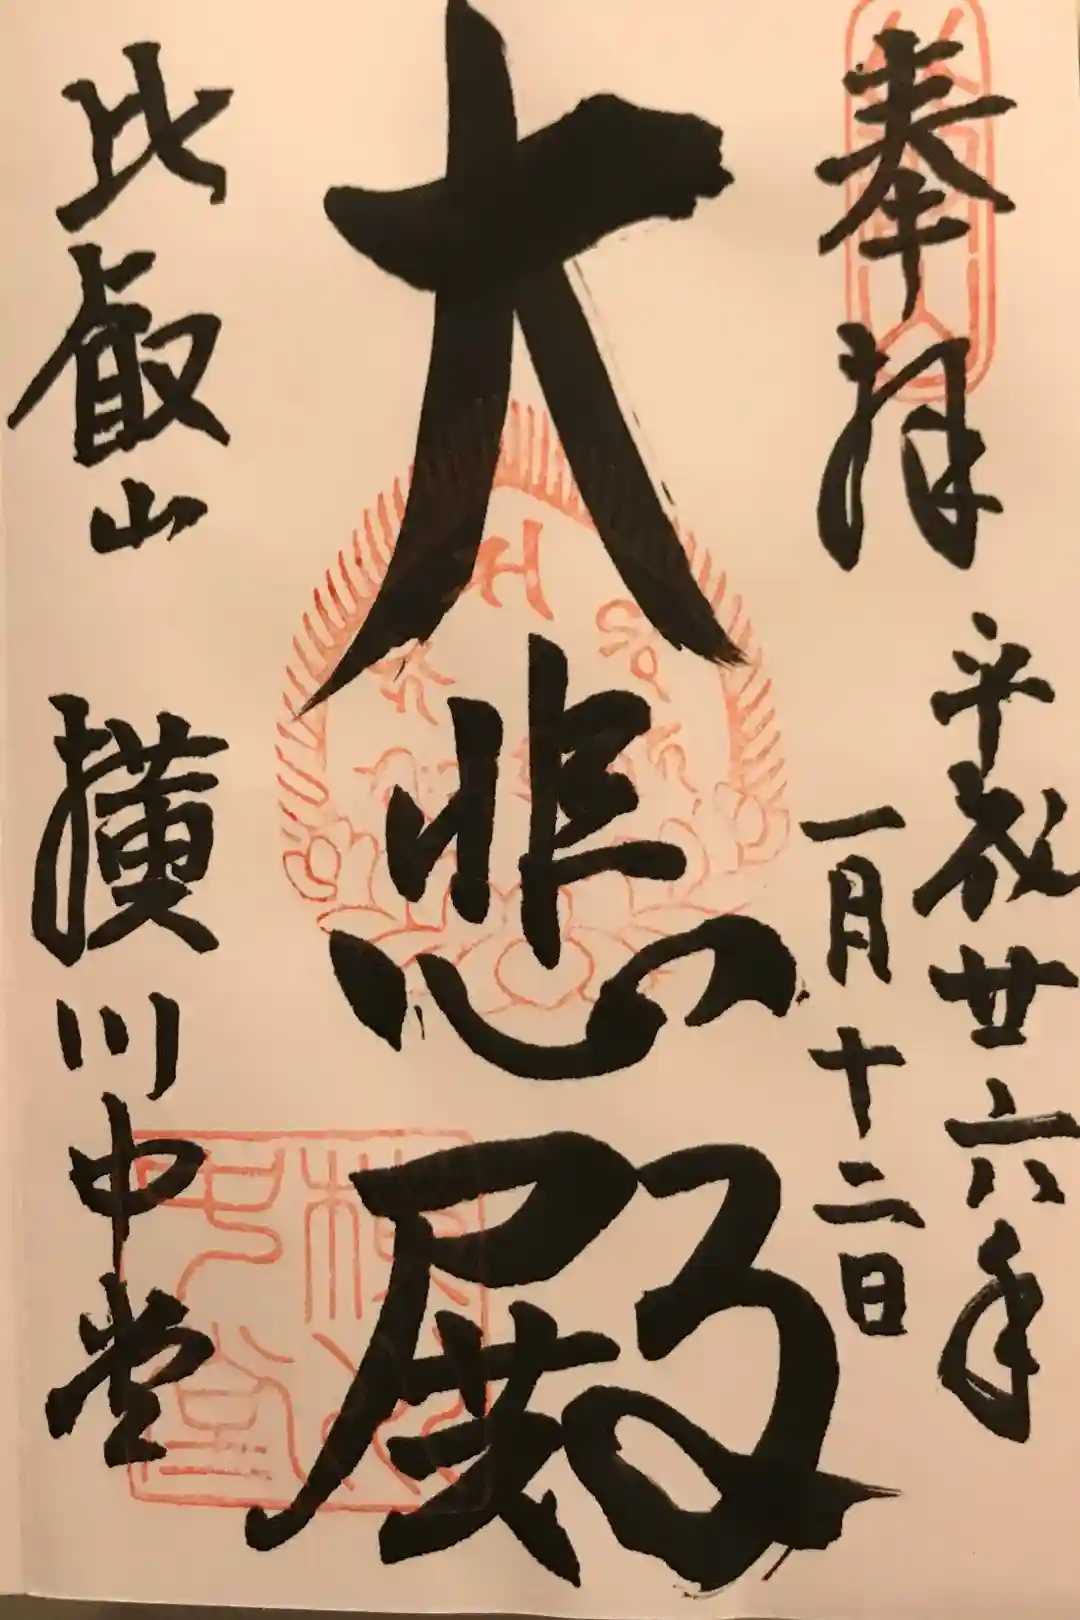 奉拝
平成廿六年
一月十二日
大悲殿
比叡山 横川中堂
横川中堂